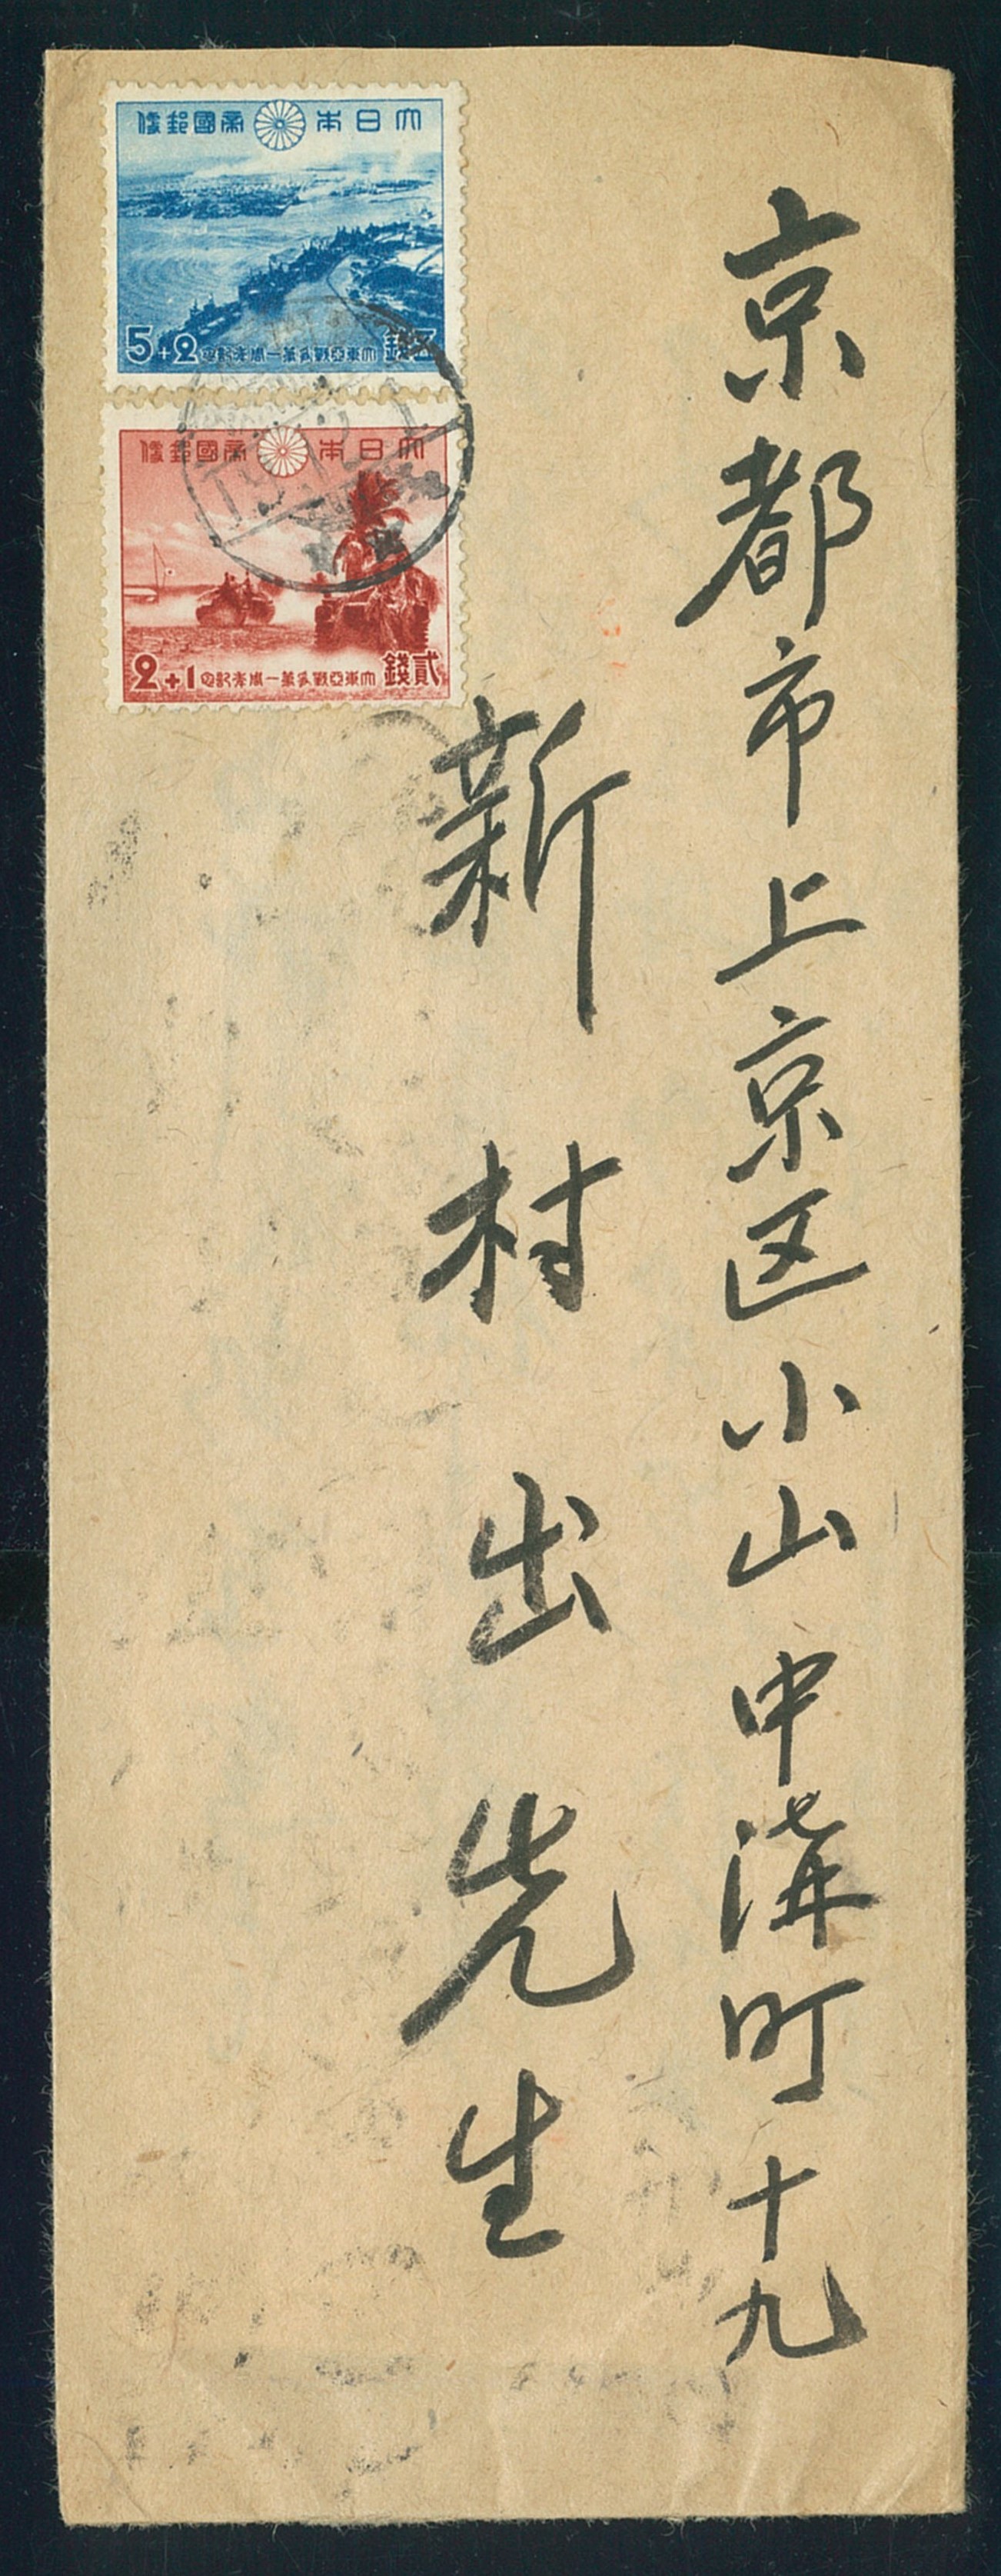 京都市上京区小山中溝町十九
新村出先生
大日本帝國郵便
5+2 大東亞戰爭第一周年記念 五錢
大日本帝國郵便
2+1 大東亞戰爭第一周年記念 貳錢